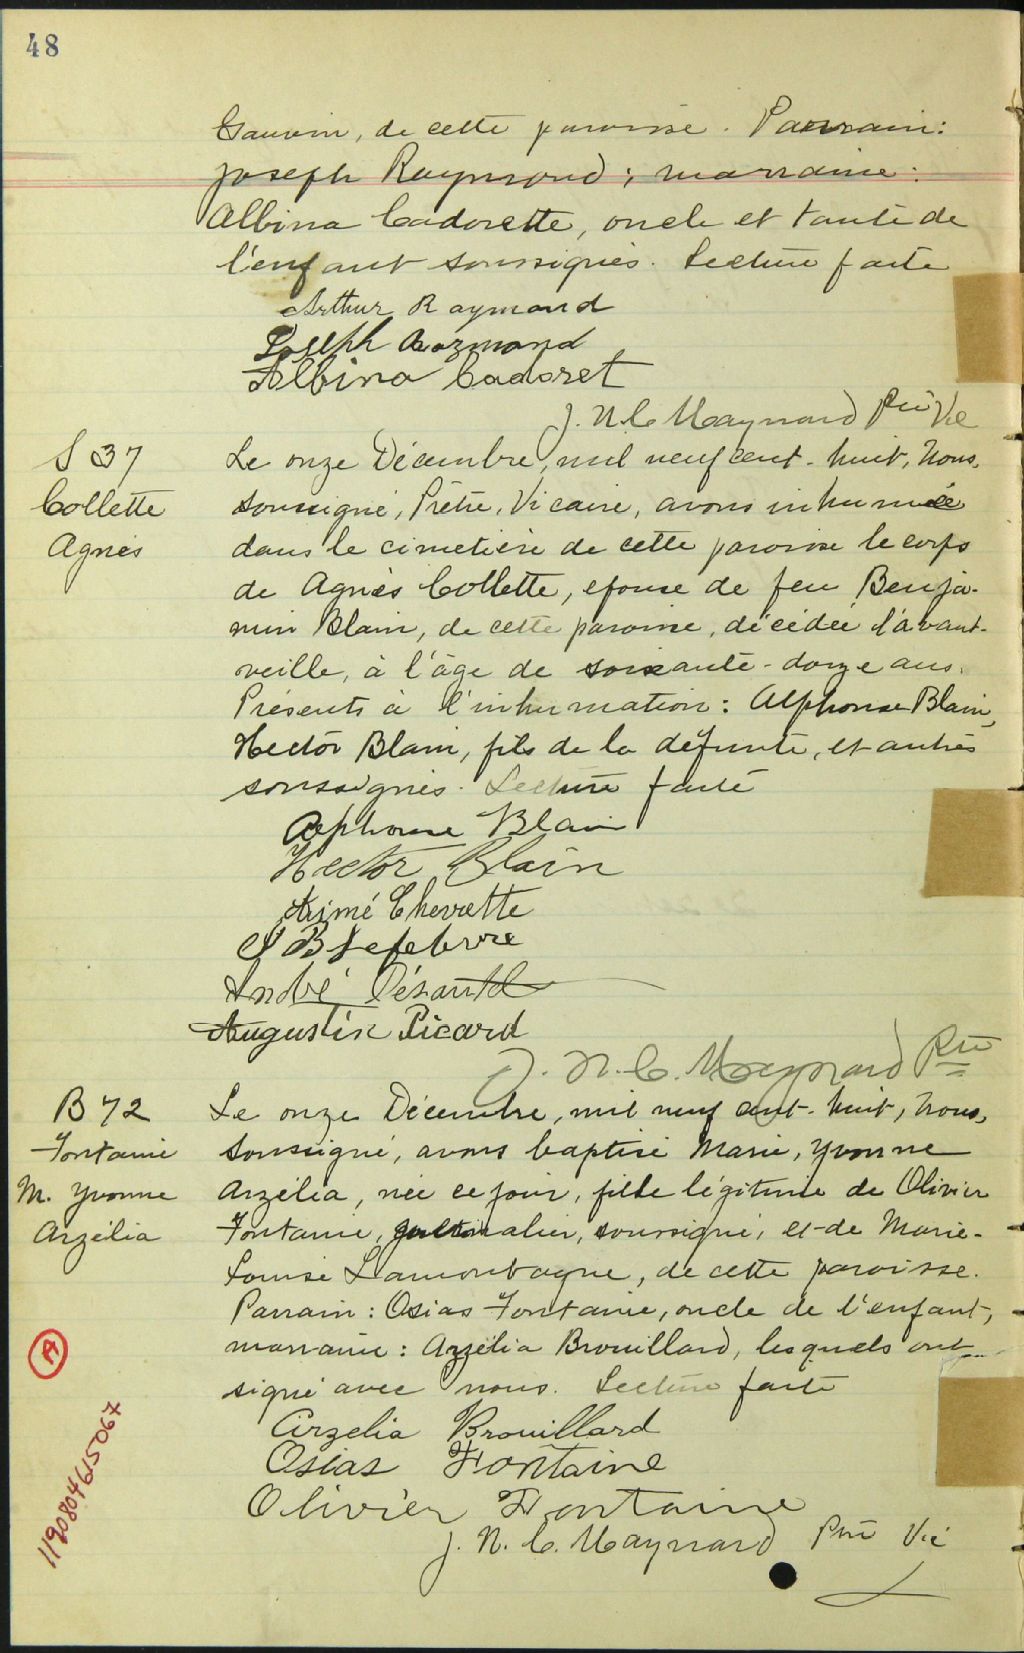 48
Gauvin, de cette paroisse. Parrain:
Joseph Raymond; marraine:
Albina Cadorette, oncle et tante de
l'enfant soussignés. Lecture faite
Arthur Raymond
Joseph Raymond
Albina Cadoret
J. N. C. Maynard Ptre Vic
S 37
Collette
Agnès
Le onze Décembre, mil neuf cent-huit, Nous,
soussigné, Prêtre, Vicaire, avons inhumée
dans le cimetière de cette paroisse le corps
de Agnès Collette, epouse de feu Benja-
min Blain, de cette paroisse, décédée l'avant-
veille, à l'âge de soixante-douze ans.
Présents à l'inhumation: Alphonse Blain,
Hector Blain, fils de la défunte, et autres
soussignés. Lecture faite
Alphonse Blain
Hector Blain
Aimé Chevrette
Lefebvre
André Désautel
Augustin Picard
J. N. C. Maynard Ptre
B 72
Fontaine
M. Yvonne
Arzélia
Le onze Décembre, mil neuf cent-huit, Nous,
soussigné, avons baptisé Marie, Yvonne
Arzélia, née ce jour, fille légitime de Olivier
Fontaine, journalier, soussigné, et de Marie-
Louise Lamontagne, de cette paroisse.
Parrain: Osias Fontaine, oncle de l'enfant,
marraine: Arzélia Brouillard, lesquels ont
signé avec nous. Lecture faite
Arzelia Brouillard
Osias Fontaine
Olivier Fontaine
J. N. C. Maynard Ptre Vic
A
1190804615067